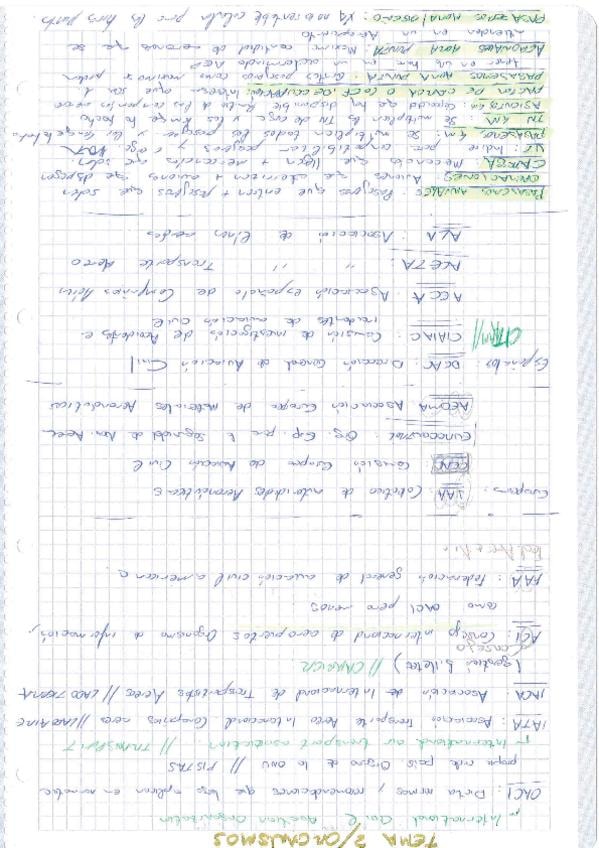 TEMA 2/ORGANISMOS
International Civil Aviation Organization
OACI: Dicta normas y recomendaciones que luego aplican en normativa
cada país. Órgano de la ONU // PISTAS
International air transport association // TRANSPORT
IATA: Asociación Transporte Aéreo Internacional Compañías aéreas // LADO AIRE
IACA Asociación de Internacional de Transportistas Aéreos // LADO TIERRA
(gestión billetes) // CARRIER
Consejo
ACI: Consejo internacional de aeropuertos Organismo de información,
como OACI pero menos
FAA: Federación general de aviación civil americana
Europeos: JAA: Colectivo de autoridades aeronáuticas
CEAC Comisión Europea de Aviación Civil
EUROCONTROL: Org. Eur. para la Seguridad de Nav. Aérea
AECMA Asociación Europea de Materiales Aeronáuticos
Españoles: DGAC: Dirección General de Aviación Civil
CIAIAC: Comisión de investigación de Accidentes e
incidentes de aviación civil
AECA: Asociación española de Compañías Aéreas
ACETA: " " Transporte Aéreo
ALA: Asociación de líneas aéreas
PASAJEROS ANUALES: Pasajeros que entran + pasajeros que salen
OPERACIONES: Aviones que aterrizan + aviones que despegan
CARGA: Mercancías que llegan + mercancías que salen
UT: Índice para contabilizar pasajeros y carga
PASAJEROS KM: Se multiplican todos los pasajeros y los
TN KM: Se multiplica la TN de carga y los km que ha hecho
ASIENTOS KM: capacidad que hay disponible
FACTOR DE CARGA O COEF. DE OCUPACIÓN: interesa que sea 1
PASAJEROS HORA PUNTA: Cuántos pasajeros como máximo pueden
haber en una hora en un determinado AEP
AERONAVES HORA PUNTA: Máxima cantidad de aeronaves que se
atienden en un Aeropuerto
PASAJEROS HORA/DISEÑO: